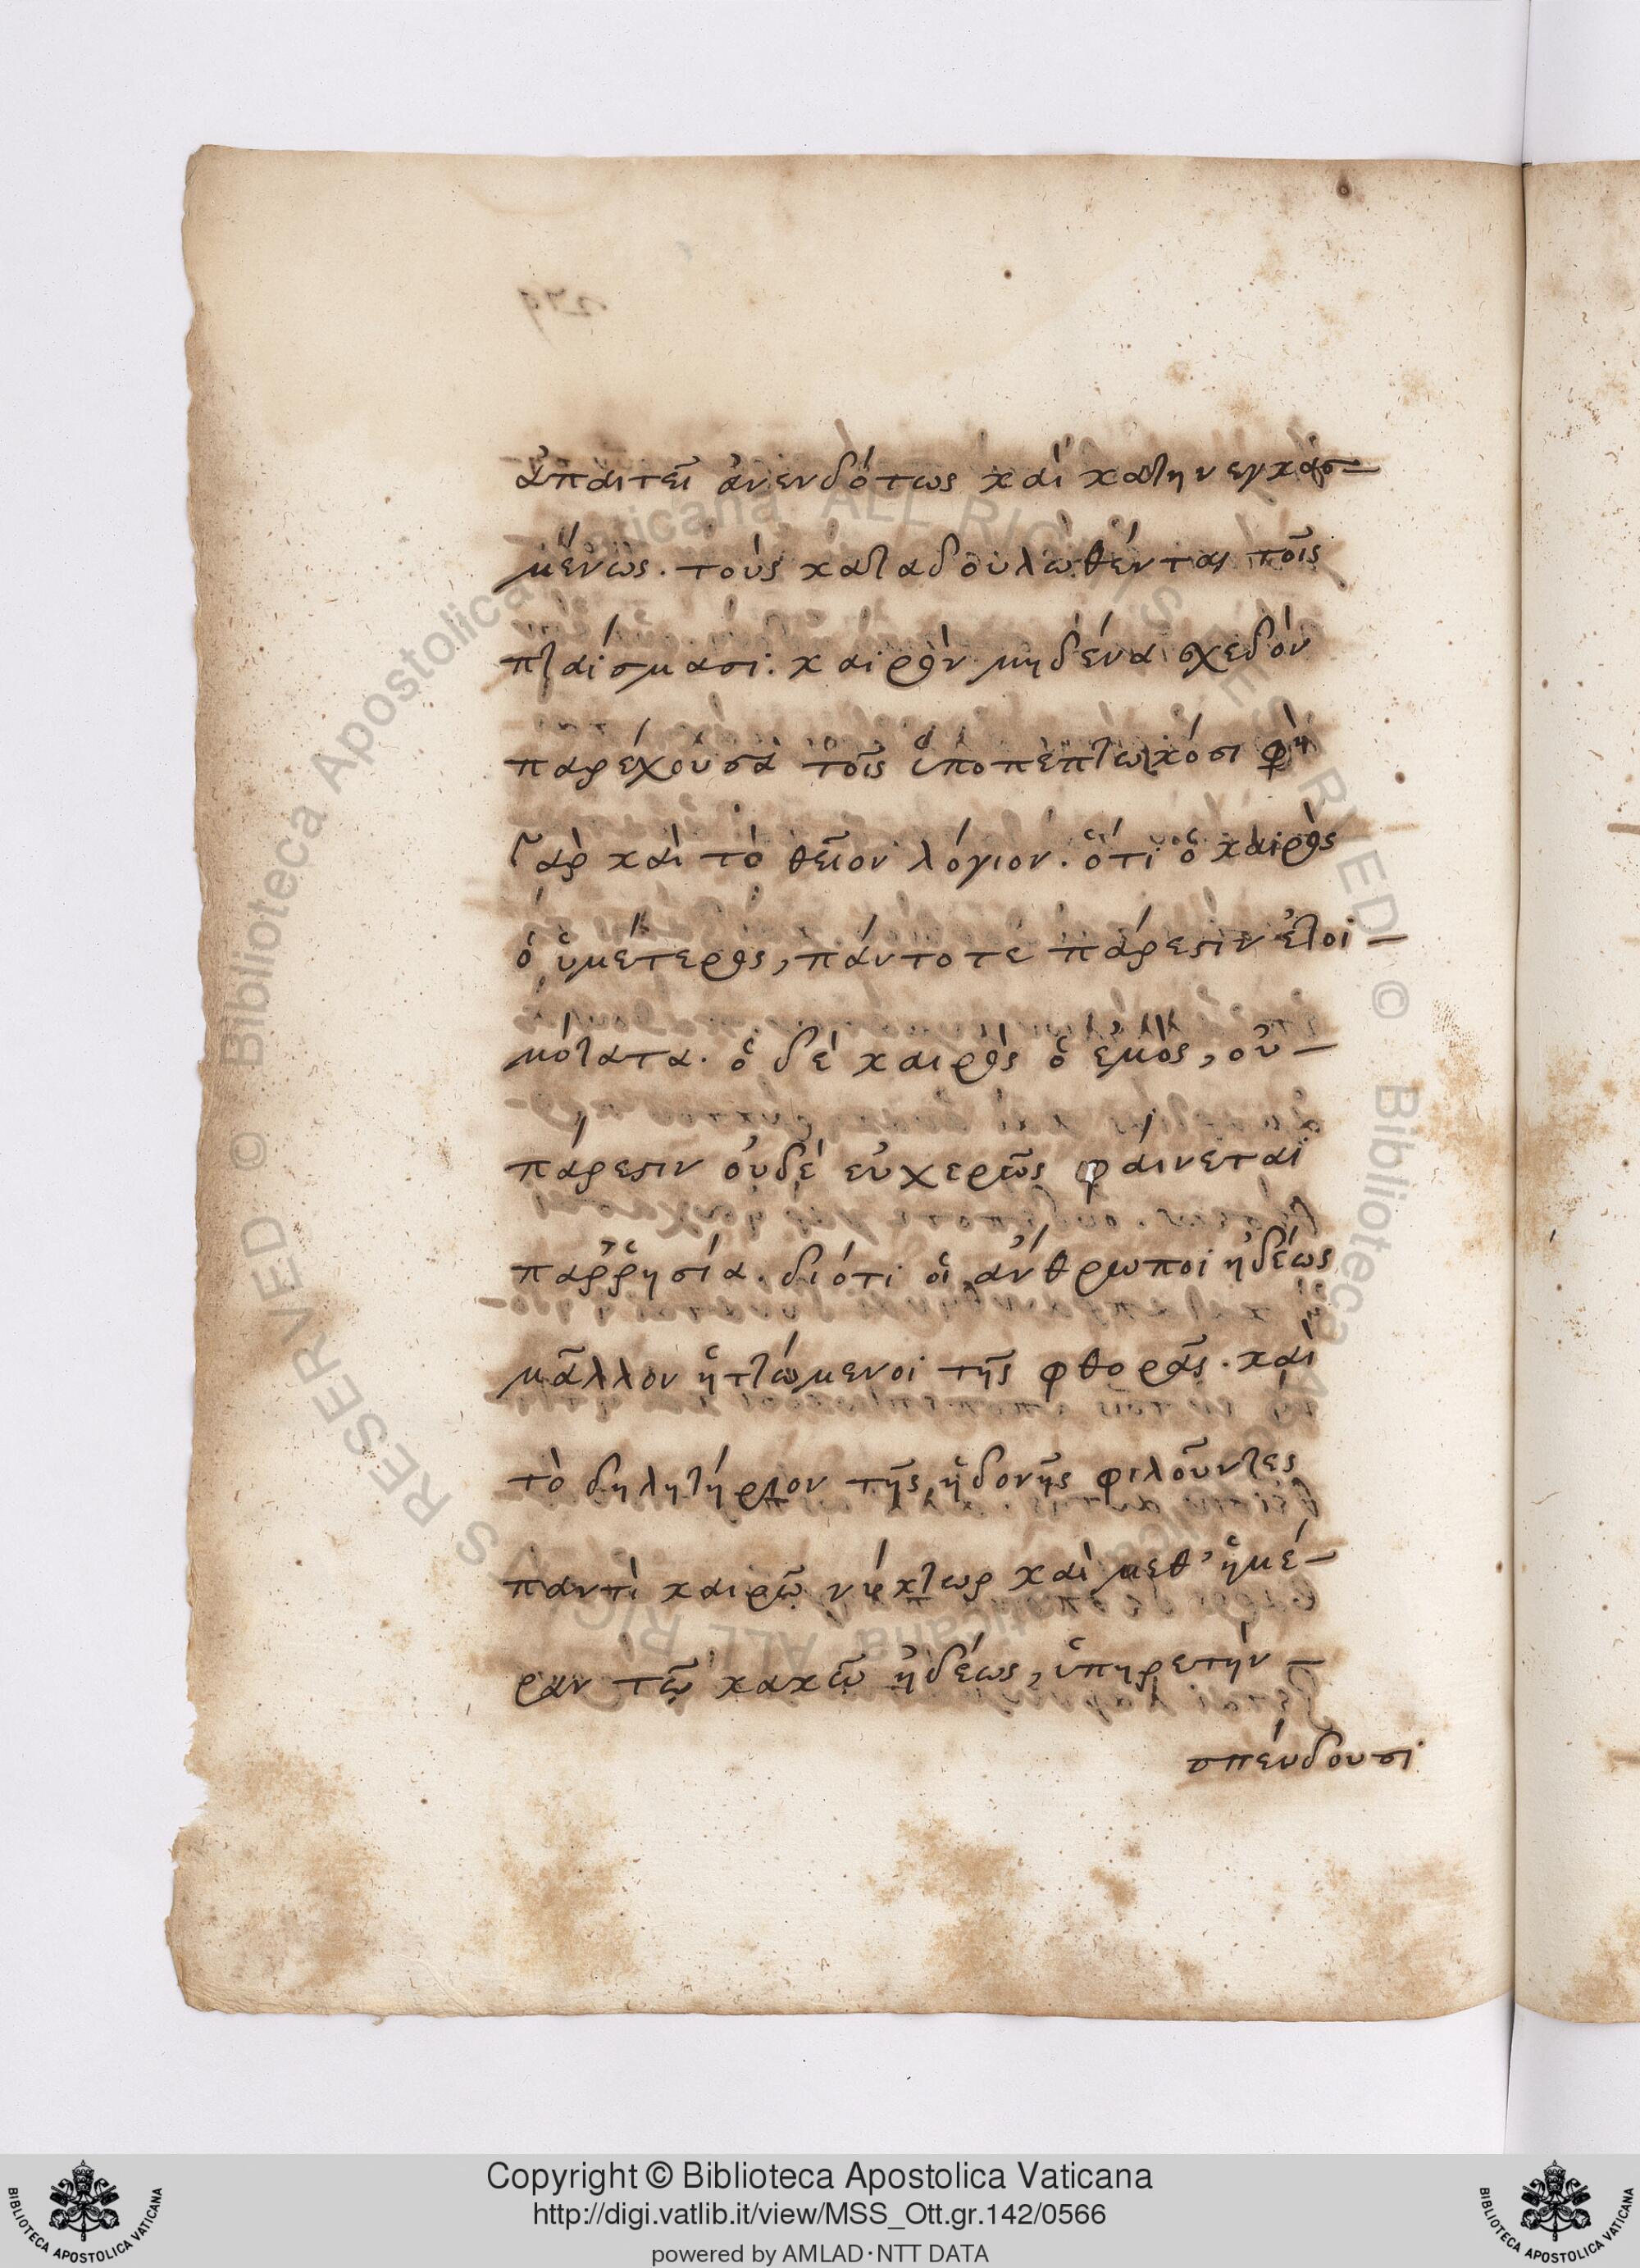 ἀπαιτεῖ ἀνενδότως καὶ κατηνεγκασ-
μένως. τοὺς καταδουλωθέντας τοῖς
πταίσμασι. καιρὸν μηδένα σχεδὸν
παρέχουσα τοῖς ὑποπεπτωκόσι φη
Γὰρ καὶ τὸ θεῖον λόγιον. ὅτι ὁ καιρὸς
ὁ ὑμέτερος, πάντοτε πάρεστιν ἑτοι-
μότατα. ὁ δὲ καιρὸς ὁ ἐμὸς, οὐ-
πάρεστιν οὐδὲ εὐχερῶς φαίνεται
παῤῥησία. διότι οἱ ἄνθρωποι ἡδέως
μᾶλλον ἡττώμενοι τῆς φθορᾶς. καὶ
τὸ δηλητήριον τῆς ἡδονῆς φιλοῦντες
παντὶ καιρῶ νύκτωρ καὶ μεθ' ἡμέ-
ραν τῶ κακῶ ἡδέως, ὑπηρετὴν-
σπεύδουσι
Copyright © Biblioteca Apostolica Vaticana
http://digi.vatlib.it/view/MSS_Ott.gr.142/0566
powered by AMLAD·NTT DATA
BIBLIOTECA APOSTOLICA VATICANA
BIBLIOTECA APOSTOLICA VATICANA